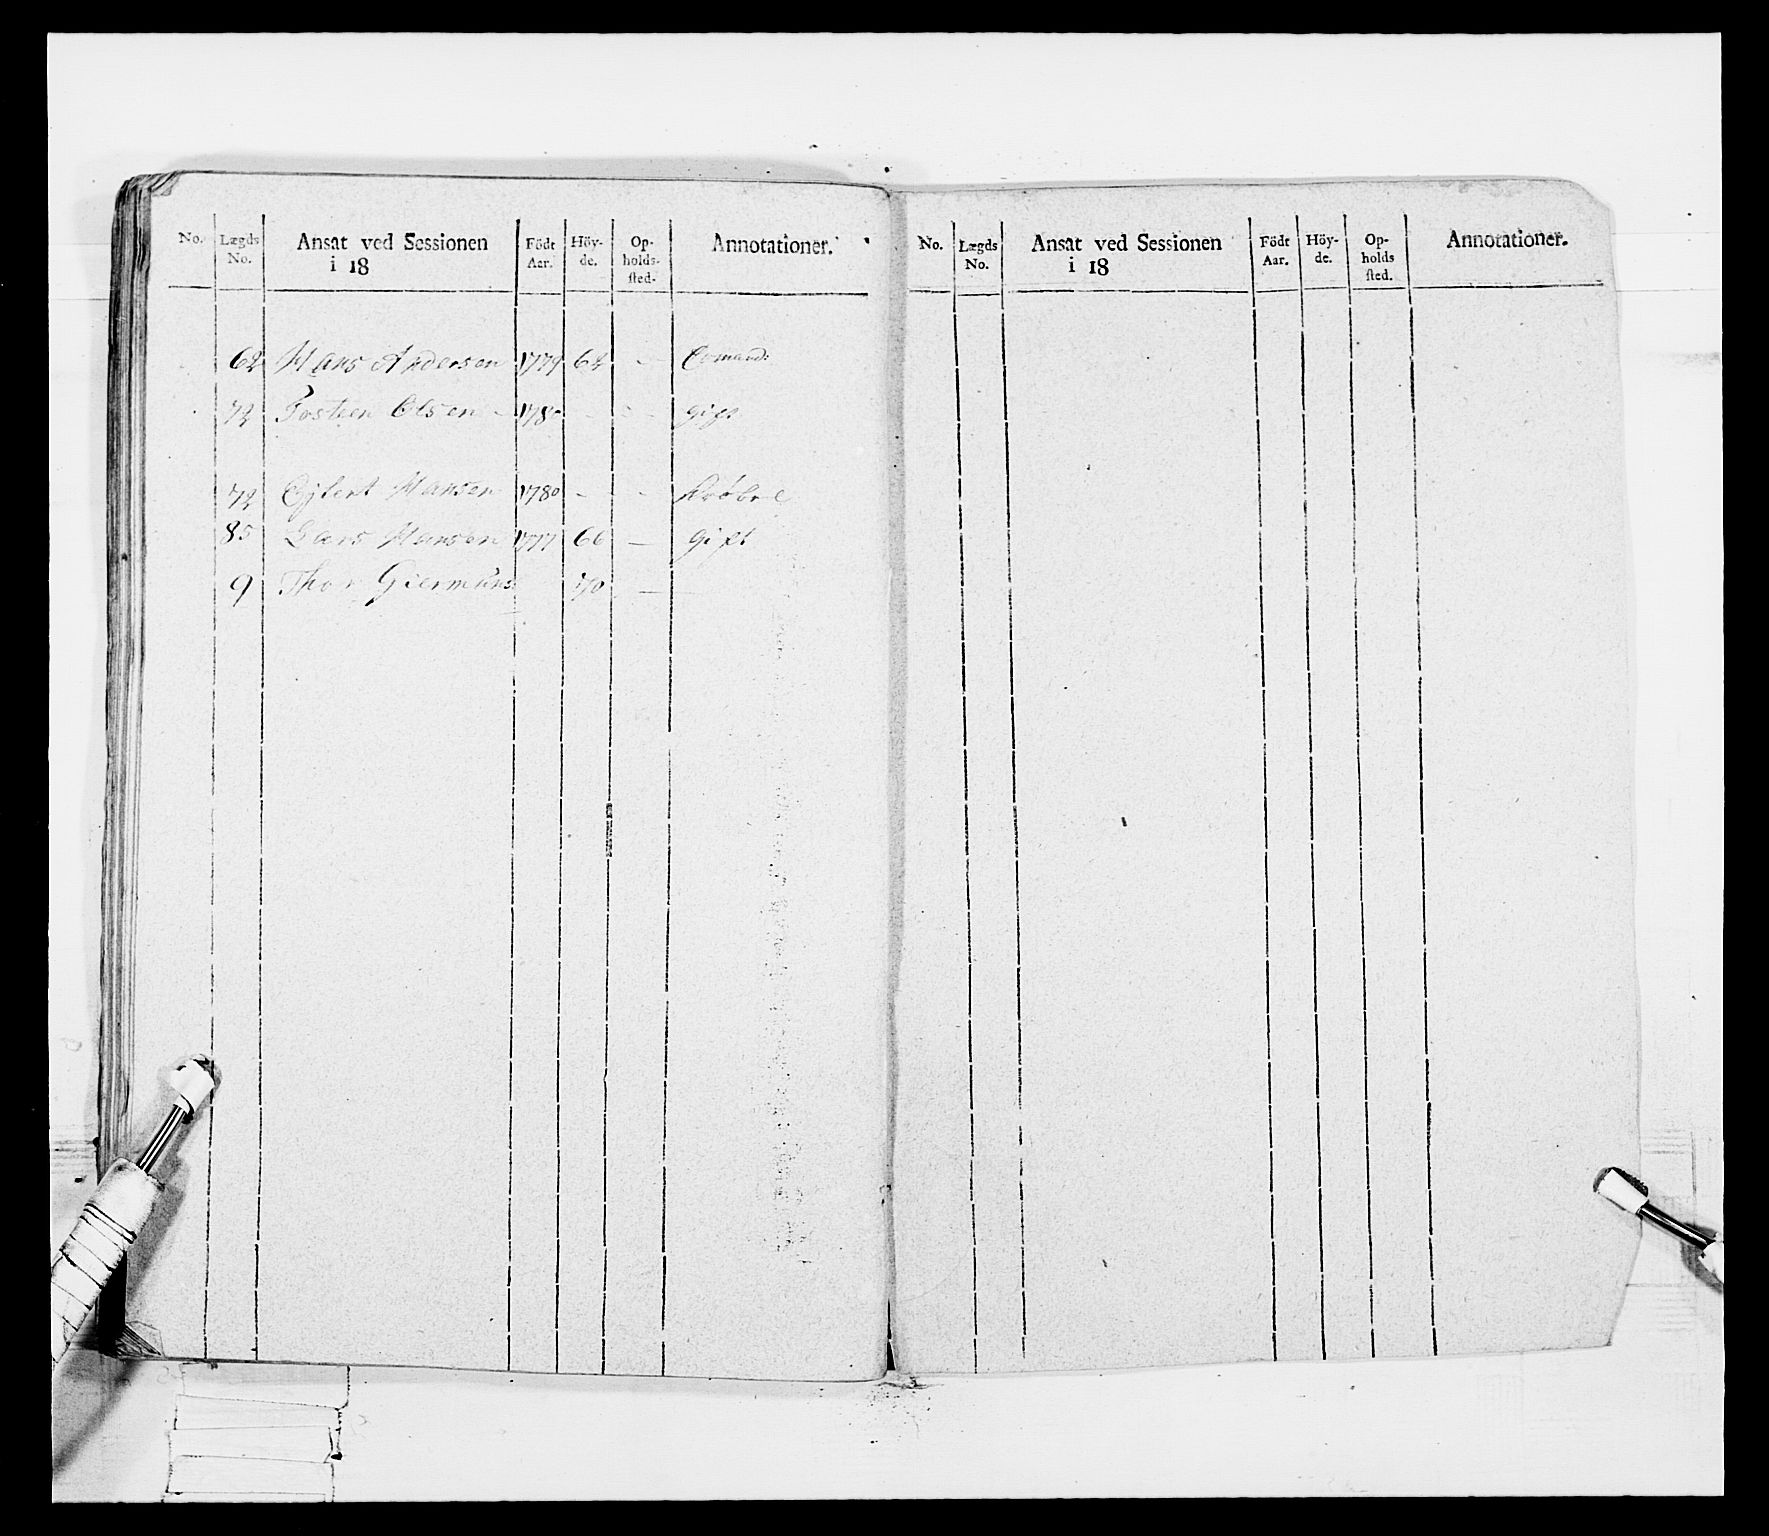 No. Lægds No. Ansat ved Sessionen i 18 Födt Aar. Höyde. Opholdssted. Annotationer.
62 Hans Andersen 1779 62 - Comand:
72 Tosteen Olsen - 178 - - - gift
72 Ejlert Hansen 1780 - - Dröbac
85 Lars Hansen 1777 66 - gift
9 Thor Giermuns 70 -
No. Lægds No. Ansat ved Sessionen i 18 Födt Aar. Höyde. Opholds sted. Annotationer.